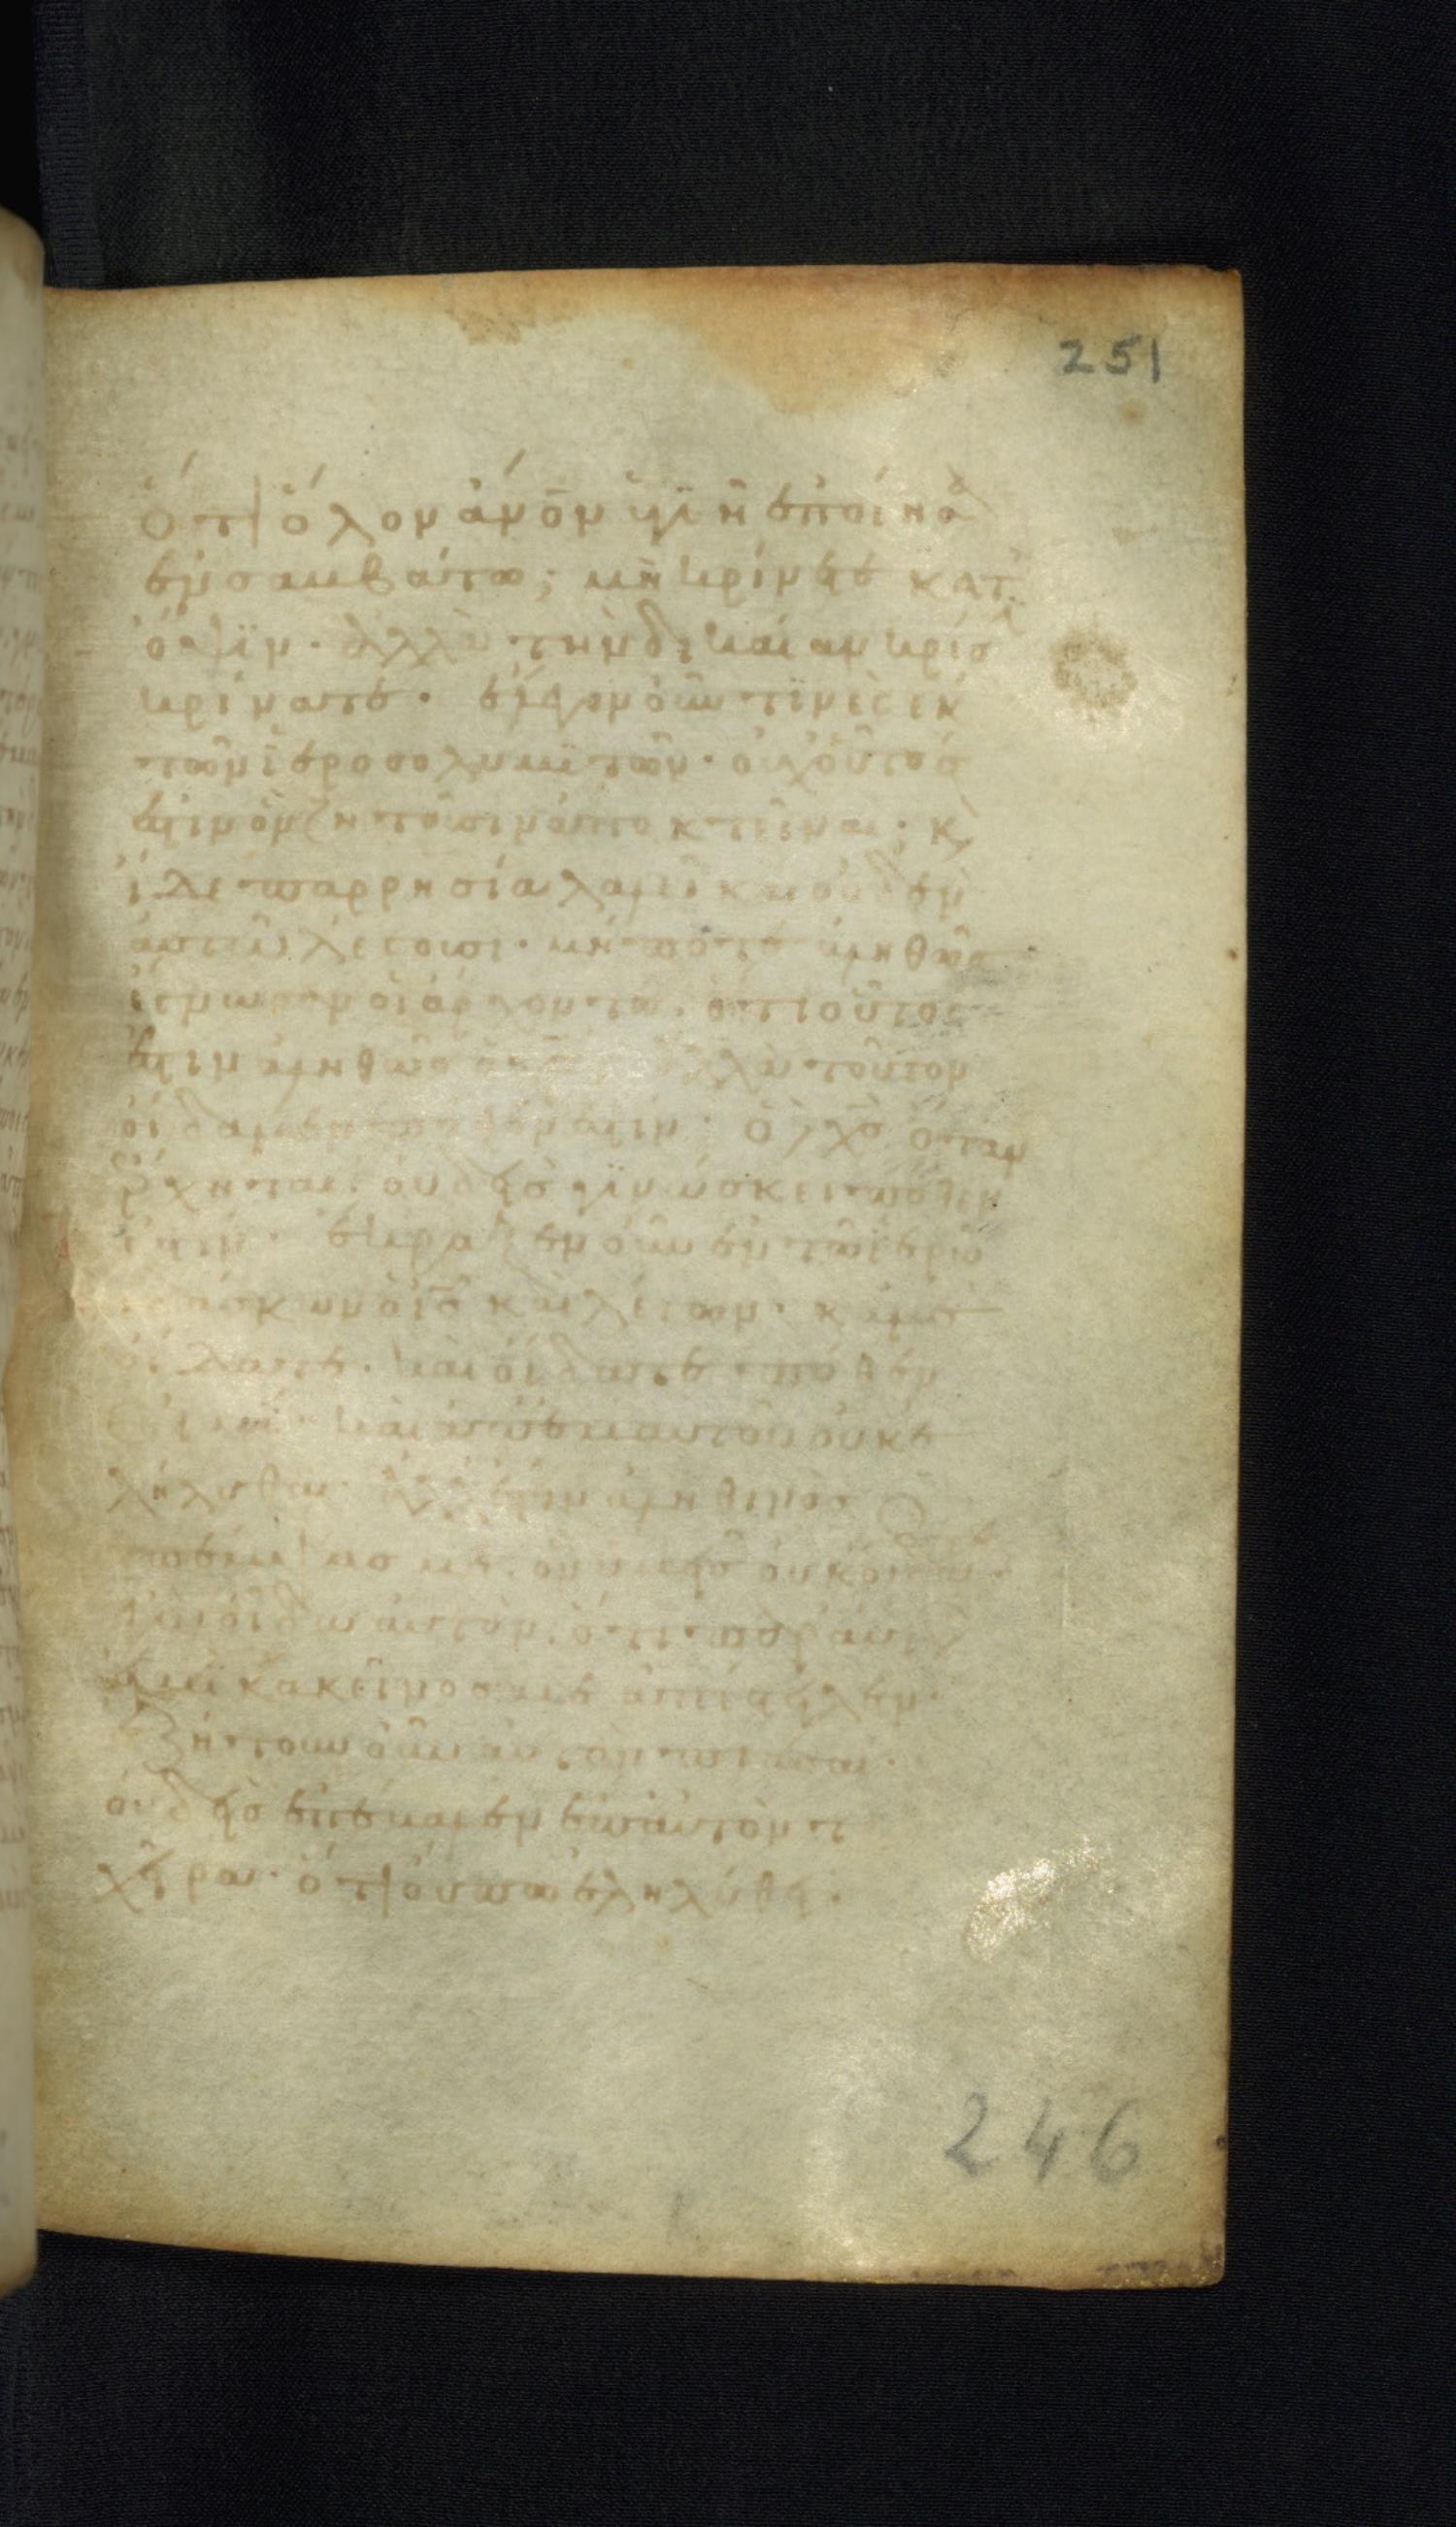 251
ὅτι ὅλον ἄνον ὑγιῆ ἐποίησα
ἐν σαμβάτω; μὴ κρίνετε κατ
ὄψιν· ἀλλὰ τὴν δικαίαν κρίσιν
κρίνατε· ἔλεγον οὖν τινὲς ἐκ
τῶν ἱεροσολυμιτῶν· οὐχ οὗτός
ἐστιν ὃν ζητοῦσιν ἀποκτεῖναι· κ
ἴδε παρρησία λαλεῖ και οὐδὲν
αὐτῶ λέγουσι· μήποτε ἀληθῶς
ἔγνωσαν οἱ ἄρχοντες· ὅτι οὗτος
ἐστιν ἀληθῶς ὁ χς ἀλλὰ τοῦτον
οἴδαμεν πόθεν ἐστίν· ὁ χς ὅταν
ἔρχηται· οὐδεὶς γινώσκει πόθεν
ἐστίν· ἔκραξεν οὖν ἐν τῶ ἱερῶ
διδάσκων ὁ ις καὶ λέγων· κἀμὲ
οἴδατε· καὶ οἴδατε πόθεν
εἰμί· καὶ ἀπ' ἐμαυτοῦ οὐκ ἐ
λήλυθα· ἀλλ' ἔστιν ἀληθινὸς ὁ
πέμψας με· ὃν ὑμεῖς οὐκ οἴδατε·
ἐγὼ οἶδα αὐτὸν· ὅτι παρ' αὐτοῦ
εἰμὶ κἀκεῖνος με ἀπέστειλεν·
Ζήτουν οὖν αὐτὸν πιάσαι·
οὐδεὶς ἐπέβαλεν ἐπ' αὐτὸν τ
χεῖρα· ὅτι οὔπω ἐληλύθει·
246